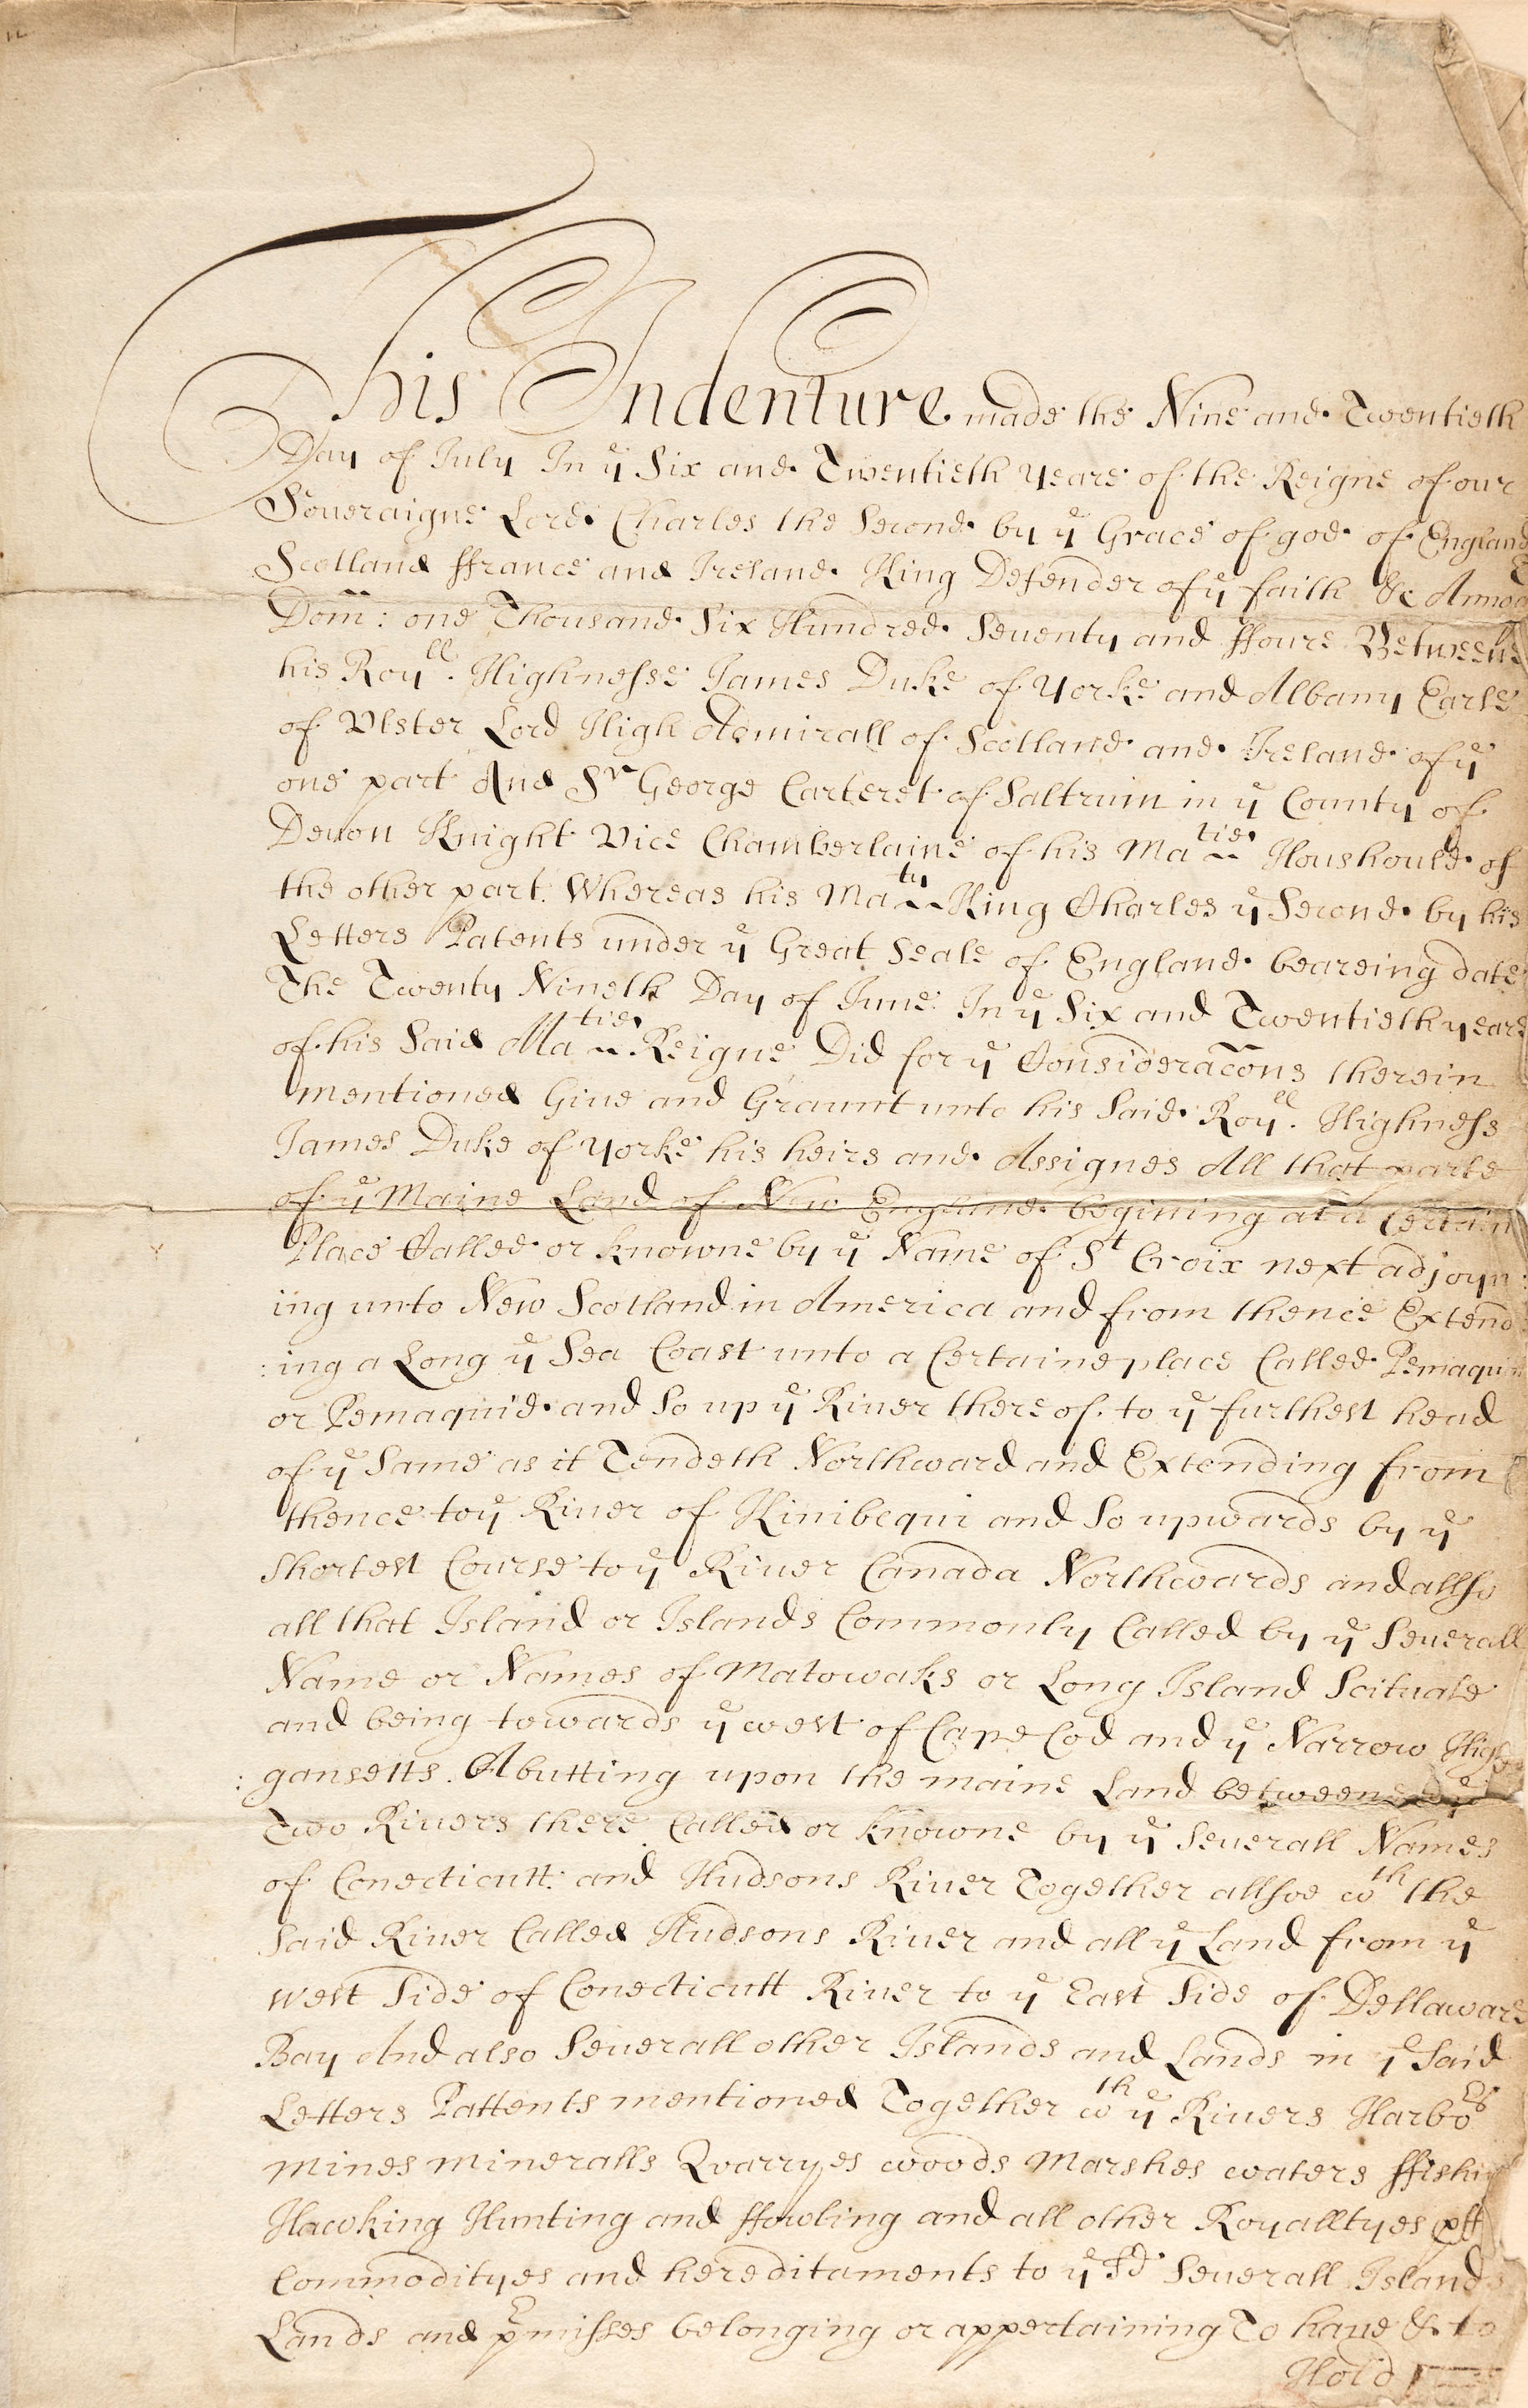 This Indenture made the Nine and Twentieth
Day of July In yͤ Six and Twentieth yeare of the Reigne of our
Soueraigne Lord Charles the Second by yͤ Grace of god of England
Scotland ffrance and Ireland King Defender of yͤ faith &c Annoq
Dom̄: one Thousand Six Hundred Seuenty and ffoure Betweene
his Royˡˡ. Highnesse James Duke of Yorke and Albany Earle
of Vlster Lord High Admirall of Scotland and Ireland of yͤ
one part And Sʳ George Carteret of Saltrum in yͤ County of
Deuon Knight Vice Chamberlaine of his Maᵗⁱᵉ Houshould of
the other part. Whereas his Maᵗʸ King Charles yͤ Second by his
Letters Patents under yͤ Great Seale of England beareing date
The Twenty Nineth Day of June In yͤ Six and Twentieth yeare
of his Said Maᵗⁱᵉ Reigne Did for yͤ Consideracõns therein
mentioned Giue and Graunt unto his Said Royˡˡ. Highness
James Duke of Yorke his heirs and Assignes All that parte
of yͤ Maine Land of New England begining at a Certain
Place Called or knowne by yͤ Name of Sᵗ Croix next adjoyn:
ing unto New Scotland in America and from thence Extend
:ing a Long yͤ Sea Coast unto a Certaine place Called Pemaquin
or Pemaquid and So up yͤ River there of to yͤ furthest head
of yͤ Same as it Tendeth Northward and Extending from
thence to yͤ Riuer of Kinibequi and So upwards by yͤ
Shortest Course to yͤ Riuer Canada Northwards and allso
all that Island or Islands Commonly Called by yͤ Seuerall
Name or Names of Matowaks or Long Island Scituate
and being towards yͤ west of Cape Cod and yͤ Narrow High
:gansetts. Abutting upon the maine Land betweene yͤ
Two Riuers there Called or knowne by yͤ Seuerall Names
of Conecticutt and Hudsons Riuer Together allsoe wᵗʰ the
Said Riuer Called Hudsons Riuer and all yͤ Land from yͤ
west Side of Conecticutt Riuer to yͤ East Side of Dellaware
Bay And also Seuerall other Islands and Lands in yͤ Said
Letters Pattents mentioned Together wᵗʰ yͤ Riuers Harboʳˢ
Mines Mineralls Quarryes woods Marshes waters
Hawking Hunting and ffowling and all other Royalltyes
Commodityes and hereditaments to yͤ sᵈ Seuerall Islands
Lands and pʳmisses belonging or appertaining To haue & to
Hold